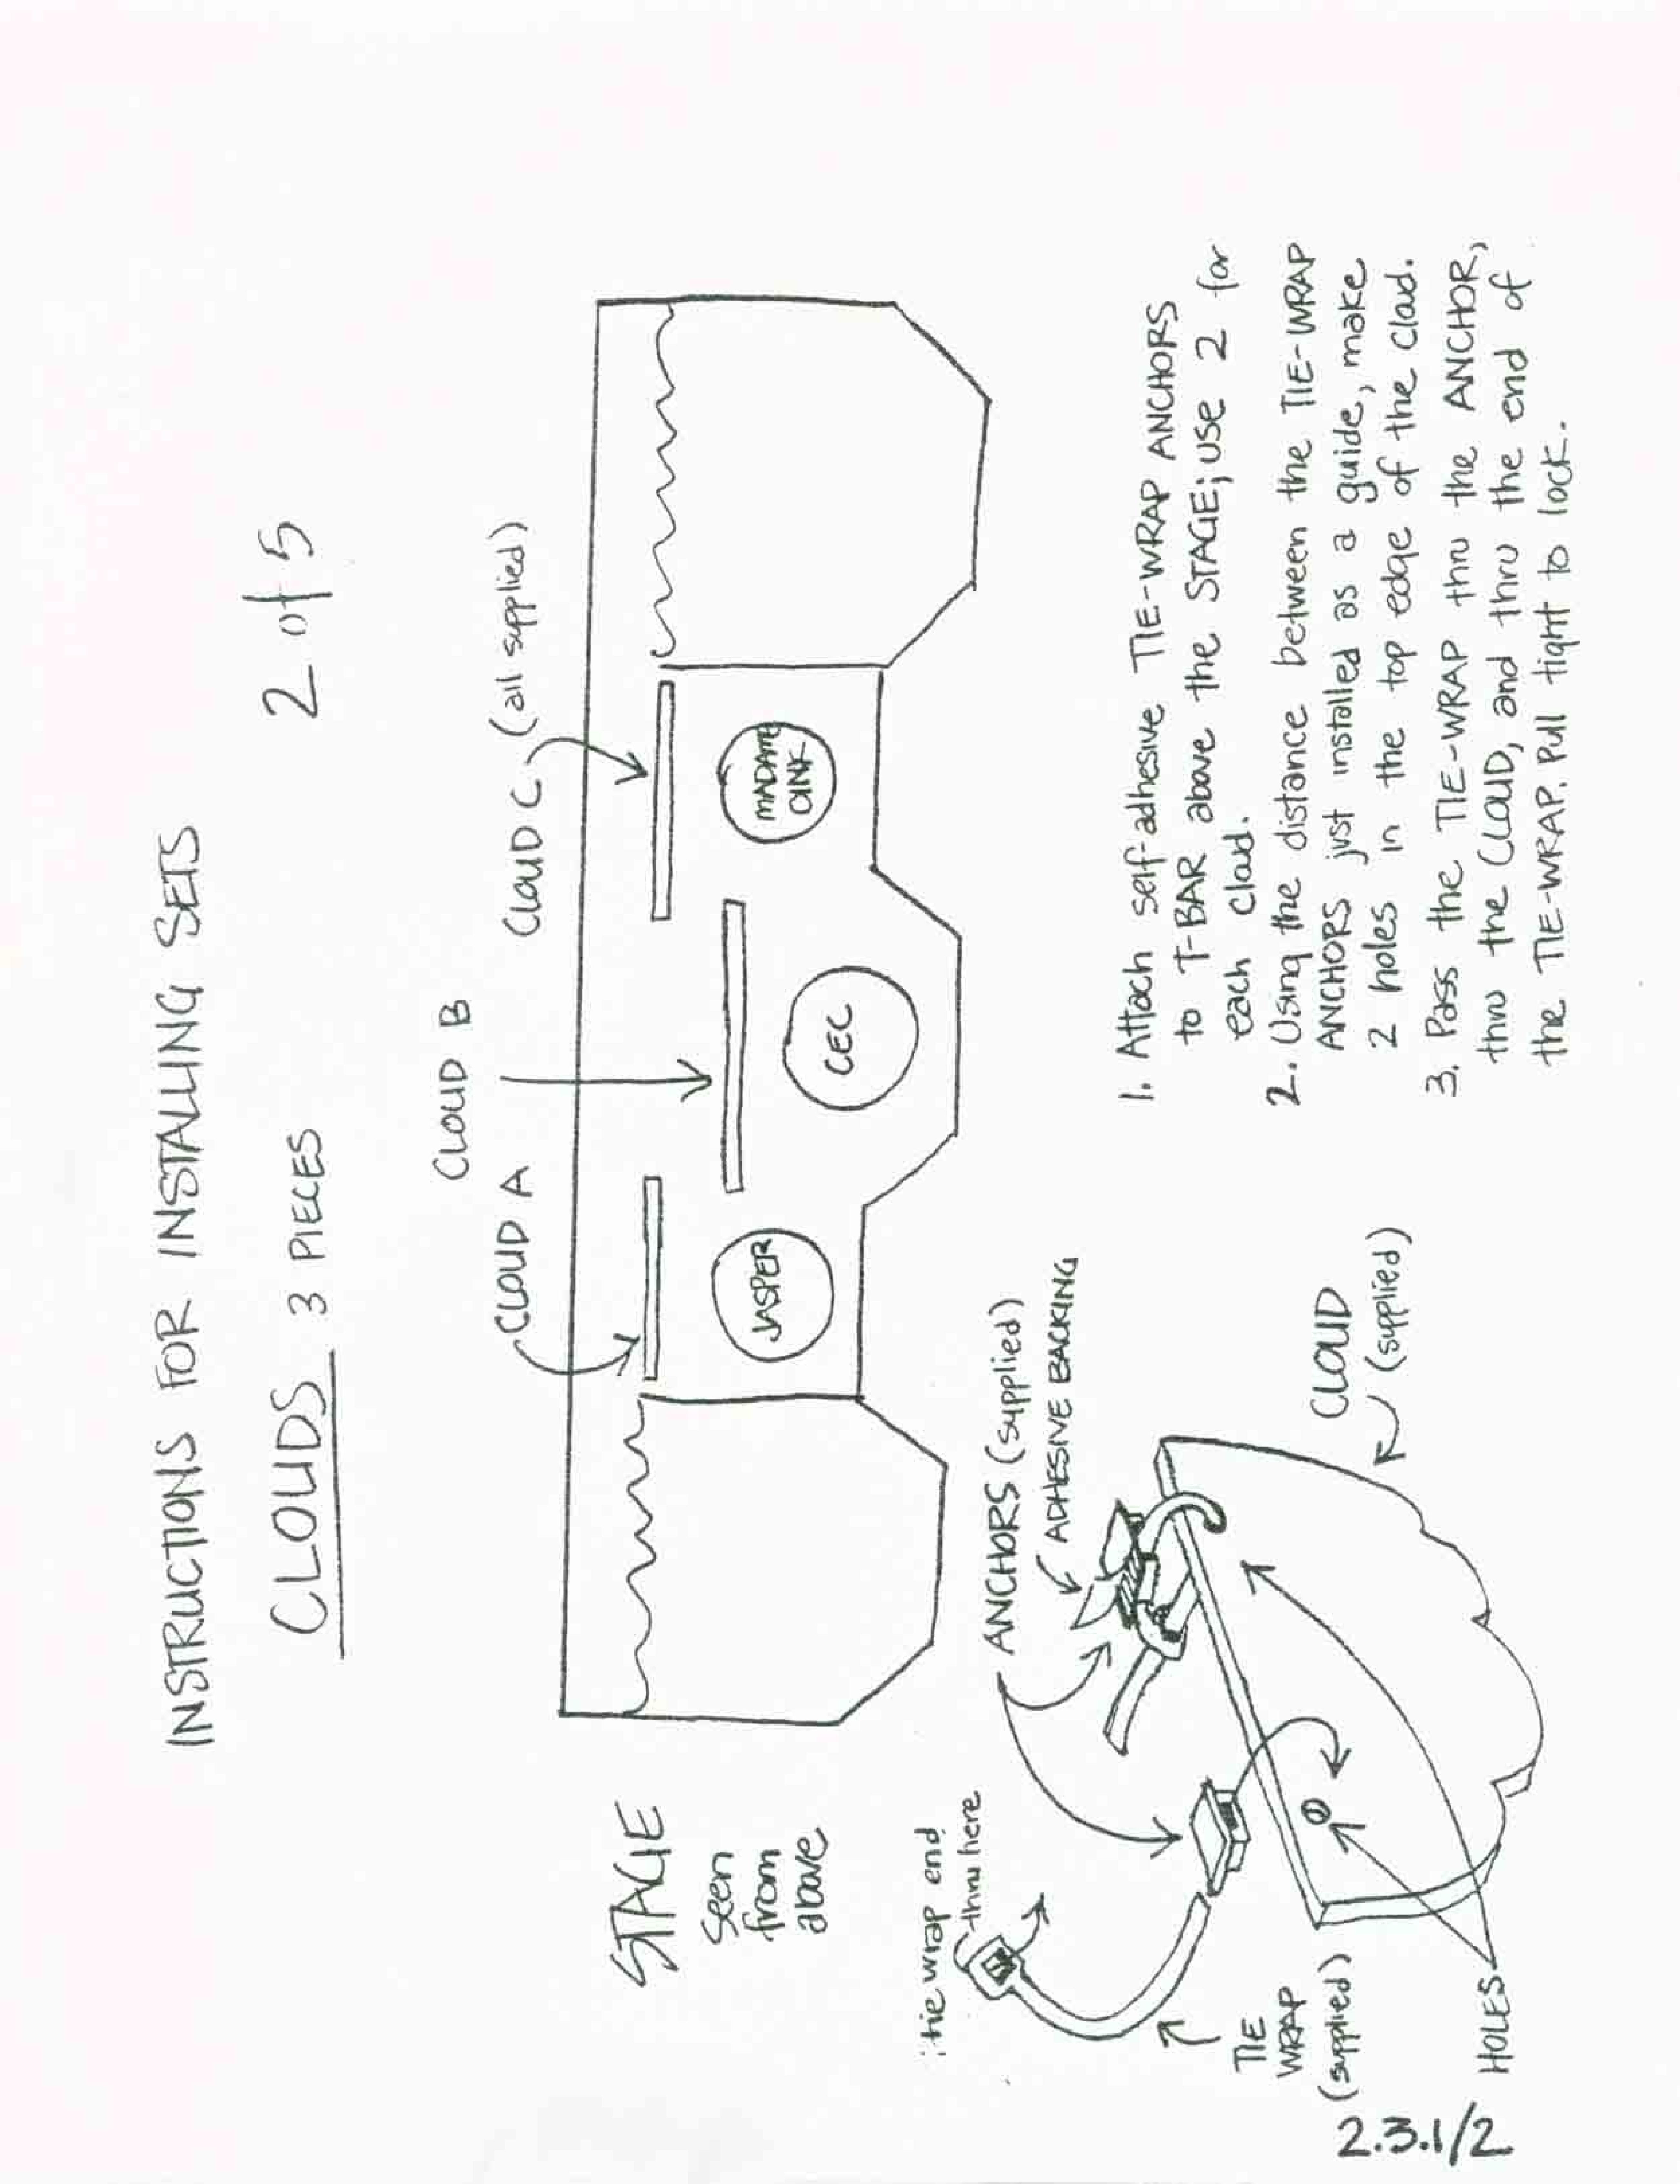 INSTRUCTIONS FOR INSTALLING SETS
CLOUDS 3 PIECES
2 of 5
CLOUD B
CLOUD A
CLOUD C (all supplied)
STAGE
seen
from
above
JASPER
CEC
MADAME
OINK
tie wrap end
thru here
ANCHORS (supplied)
ADHESIVE BACKING
TIE
WRAP
(supplied)
CLOUD
(supplied)
HOLES
1. Attach self-adhesive TIE-WRAP ANCHORS
to T-BAR above the STAGE; use 2 for
each cloud.
2. Using the distance between the TIE-WRAP
ANCHORS just installed as a guide, make
2 holes in the top edge of the cloud.
3. Pass the TIE-WRAP thru the ANCHOR,
thru the CLOUD, and thru the end of
the TIE-WRAP. Pull tight to lock.
2.3.1/2